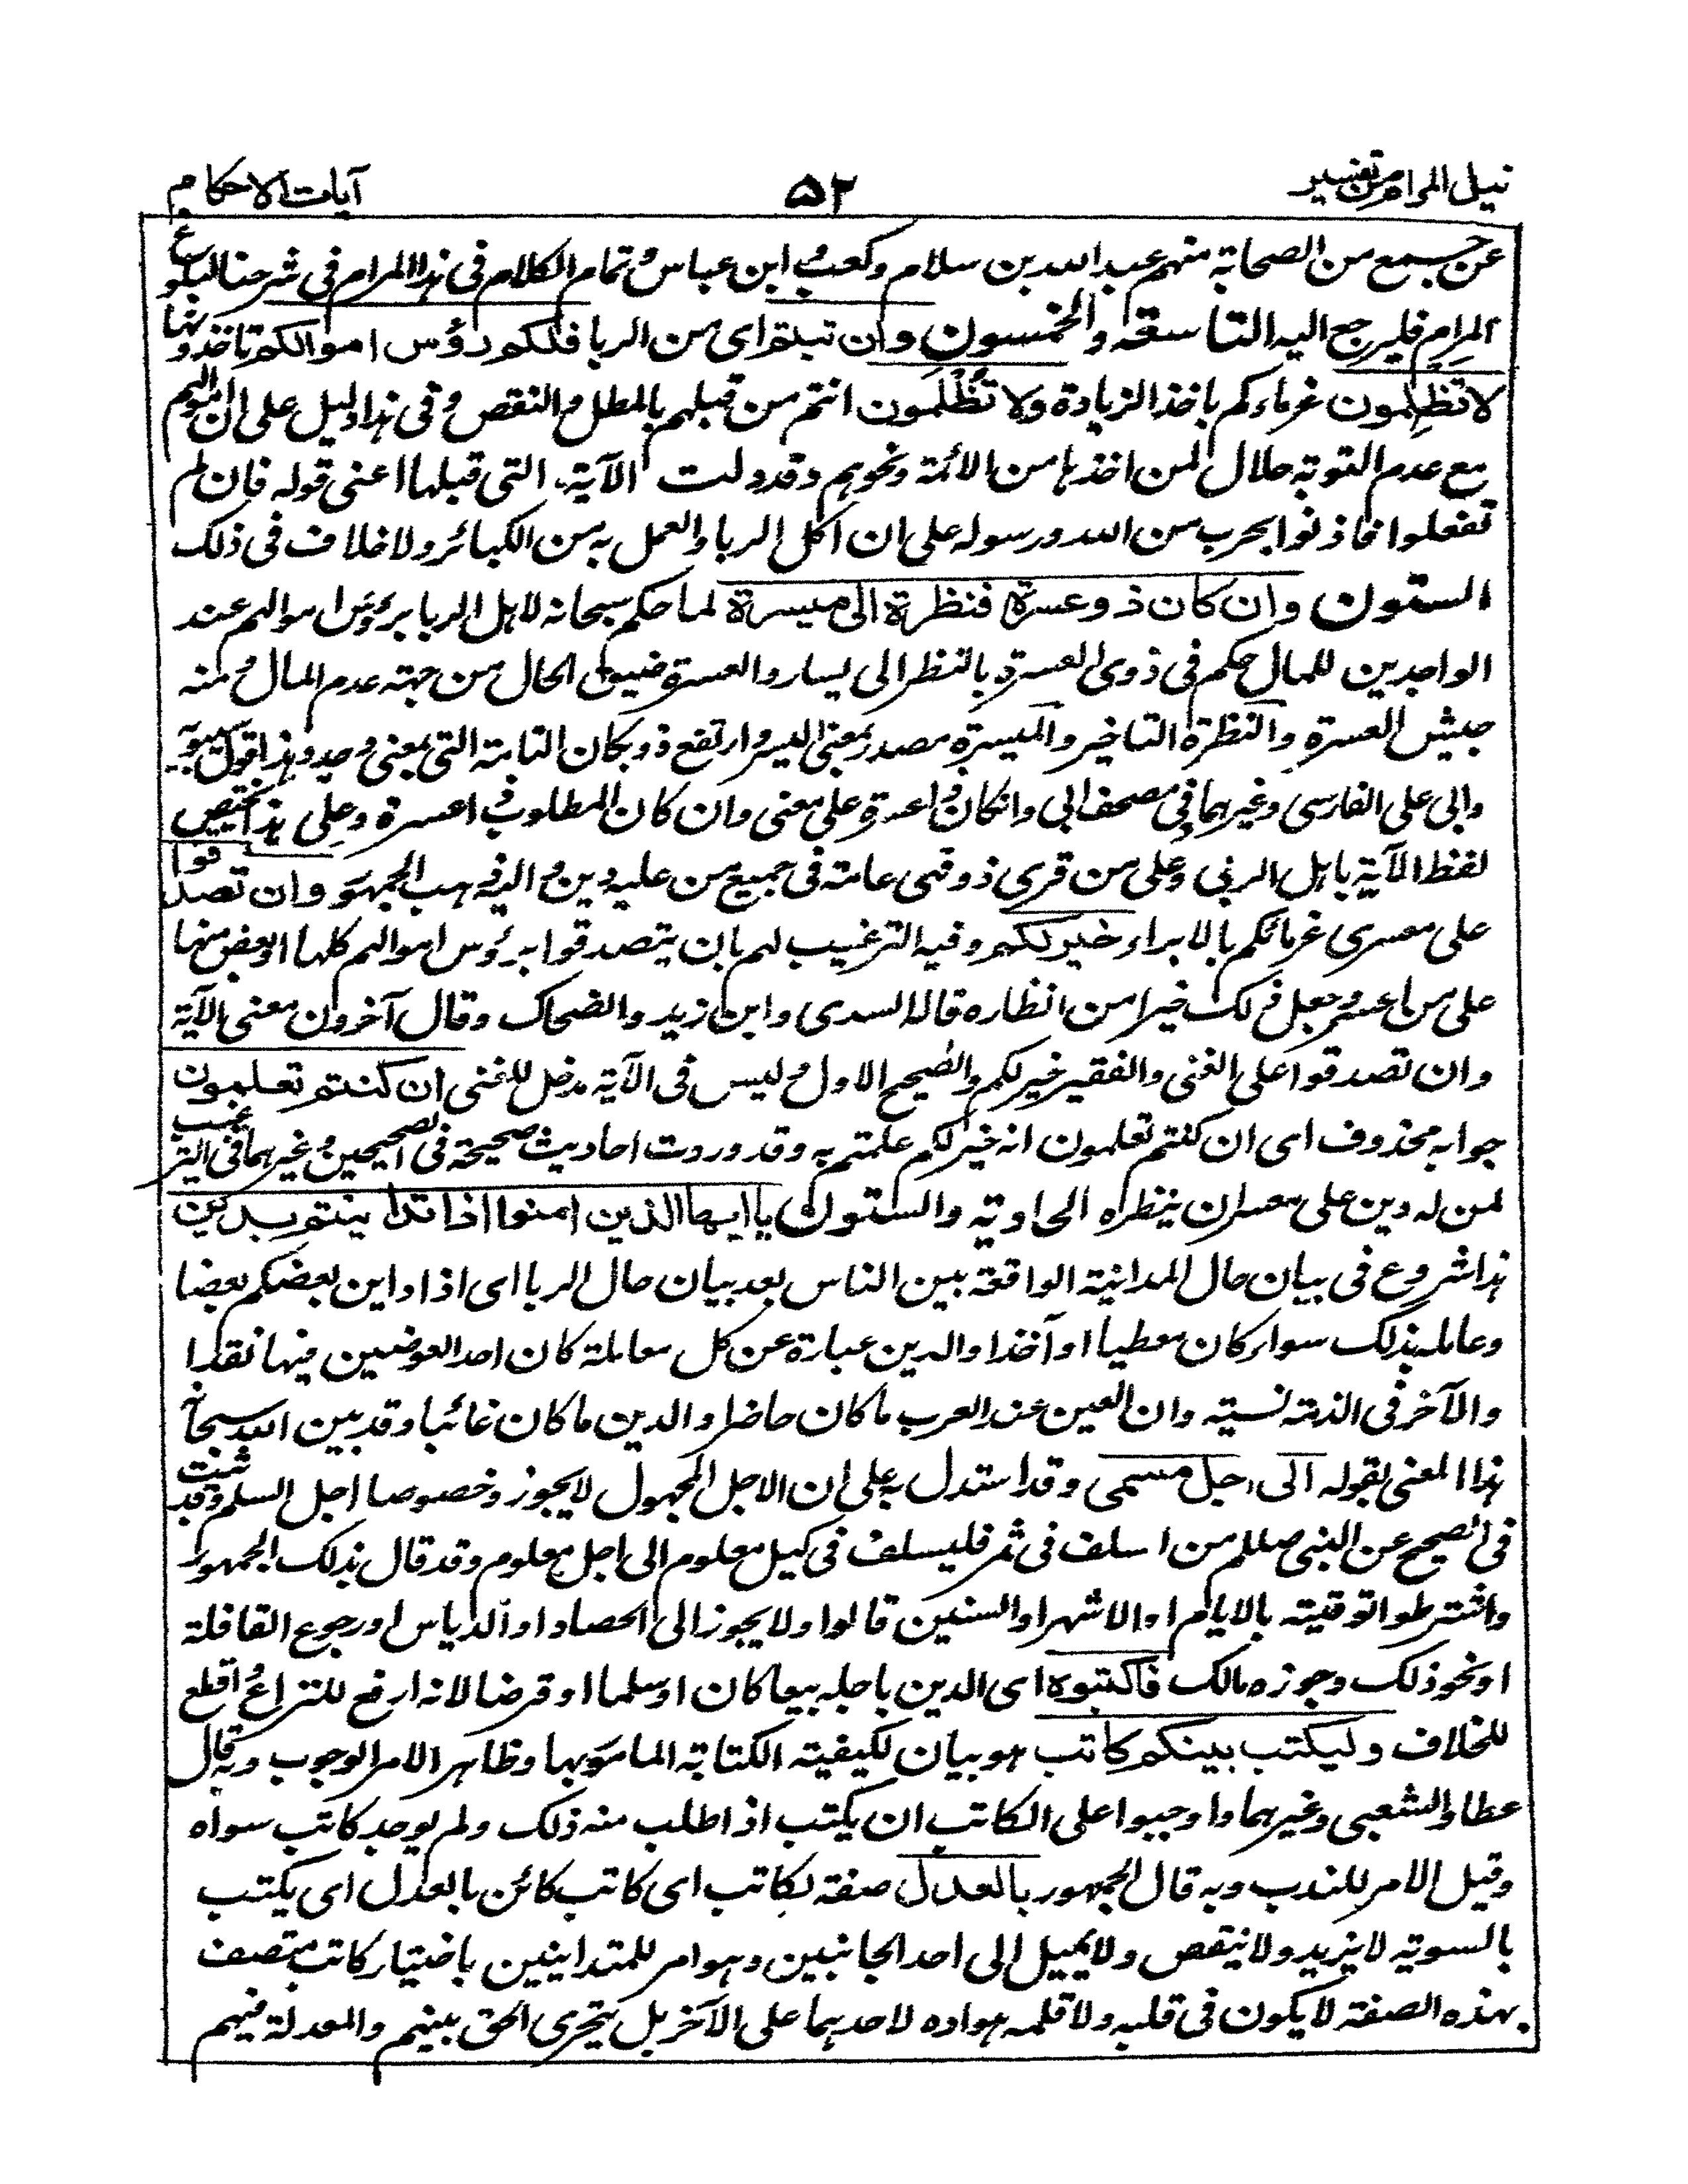 نيل المرام من تفسير ۵۲ آيات الاحكام
عن جمع من الصحابة منهم عبد الله بن سلام وكعب وابن عباس وتمام الكلام فى هذا المرام فى شرحنا لبلوغ
المرام فليرجع اليه التاسعة والخمسون وان تبتم اى من الربا فلكم رؤس اموالكم تاخذونها
لا تَظلِمون غرماءكم باخذ الزيادة ولا تُظْلَمون انتم من قبلهم بالمطل والنقص وفى هذا دليل على ان اموالهم
مع عدم التوبة حلال لمن اخذها من الائمة ونحوهم وقد دلت الآية، التى قبلها اعنى قوله فان لم
تفعلوا فاذنوا بحرب من الله ورسوله على ان اكل الربا والعمل به من الكبائر ولا خلاف فى ذلك
الستون وان كان ذو عسرة فنظرة الى ميسرة لما حكم سبحانه لاهل الربا برؤس اموالهم عند
الواجدين للمال حكم فى ذوى العسرة بالنظر الى يسار والعسرة ضيق الحال من جهة عدم المال ومنه
جيش العسرة والنظرة التاخير والميسرة مصدر بمعنى اليسر وارتفع ذو بكان التامة التى بمعنى وجد وهذا قول سيبويه
وابى على الفارسى وغيرهما وفى مصحف ابى وان كان ذا عسرة على معنى وان كان المطلوب ذا عسرة وعلى هذا يختص
لفظ الآية باهل الربى وعلى من قرى ذو فهى عامة فى جميع من عليه دين واليه ذهب الجمهور وان تصدقوا
على معسرى غرمائكم بالابراء خير لكم وفيه الترغيب لهم بان يتصدقوا برؤس اموالهم كلها او بعض منها
على من اعسر وجعل ذلك خيرا من انظاره قاله السدى وابن زيد والضحاك وقال آخرون معنى الآية
وان تصدقوا على الغنى والفقير خير لكم والصحيح الاول وليس فى الآية مدخل للغنى ان كنتم تعلمون
جوابه محذوف اى ان كنتم تعلمون انه خير لكم علمتم به وقد وردت احاديث صحيحة فى الصحيحين وغيرهما فى الترغيب
لمن له دين على معسر ان ينظره الحاوية والستون يا ايها الذين امنوا اذا تداينتم بدين
هذا شروع فى بيان حال المداينة الواقعة بين الناس بعد بيان حال الربا اى اذا داين بعضكم بعضا
وعامله بذلك سواء كان معطيا او آخذا والدين عبارة عن كل معاملة كان احد العوضين فيها نقدا
والآخر فى الذمة نسية وان العين عند العرب ما كان حاضرا والدين ما كان غائبا وقد بين الله سبحانه
هذا المعنى بقوله الى اجل مسمى وقد استدل به على ان الاجل المجهول لا يجوز وخصوصا اجل السلم وقد ثبت
فى الصحيح عن النبى صللم من اسلف فى ثمر فليسلف فى كيل معلوم الى اجل معلوم وقد قال بذلك الجمهور
واشترطوا توقيته بالايام او الاشهر او السنين قالوا ولا يجوز الى الحصاد او الدياس او رجوع القافلة
او نحو ذلك وجوزه مالك فاكتبوه اى الدين باجله بيعا كان او سلما او قرضا لانه ارفع للنزاع واقطع
للخلاف وليكتب بينكم كاتب هو بيان لكيفية الكتابة المامور بها وظاهر الامر الوجوب وبه قال
عطا والشعبى وغيرهما واوجبوا على الكاتب ان يكتب اذا طلب منه ذلك ولم يوجد كاتب سواه
وقيل الامر للندب وبه قال الجمهور بالعدل صفة لكاتب اى كاتب كائن بالعدل اى يكتب
بالسوية لا يزيد ولا ينقص ولا يميل الى احد الجانبين وهو امر للمتداينين باختيار كاتب متصف
بهذه الصفة لا يكون فى قلبه ولا قلمه هواده لاحدهما على الآخر بل يتحرى الحق بينهم والمعدلة فيهم